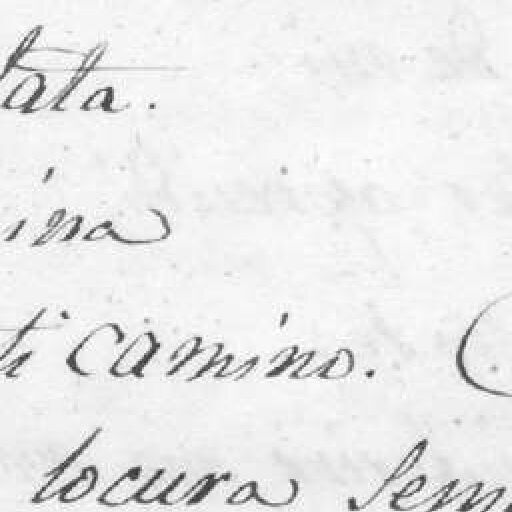 tata.
ina
ti camino. (
locura sem